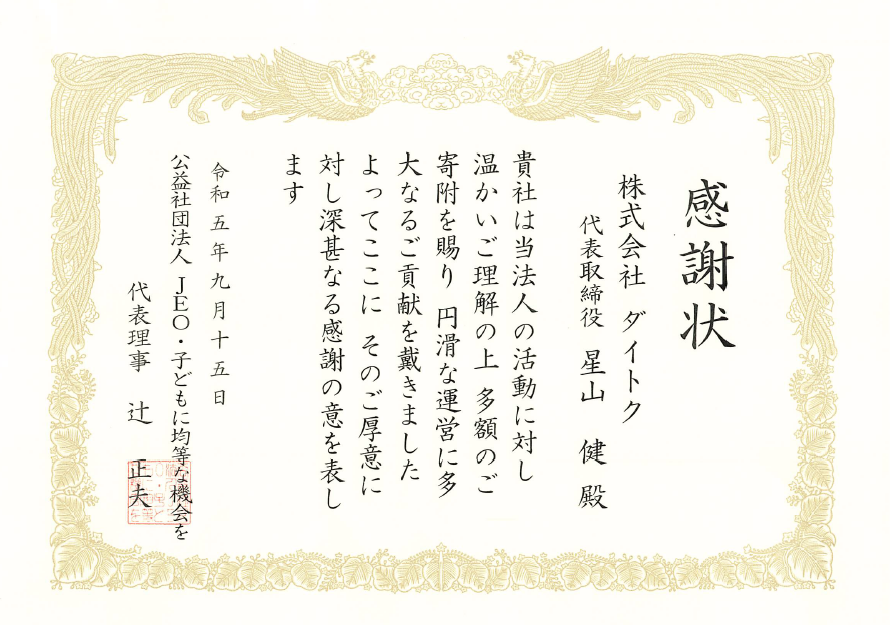 感謝状
株式会社 ダイトク
代表取締役 星山 健 殿
貴社は当法人の活動に対し
温かいご理解の上 多額のご
寄附を賜り 円滑な運営に多
大なるご貢献を戴きました
よってここに そのご厚意に
対し深甚なる感謝の意を表し
ます
令和五年九月十五日
公益社団法人 JEO・子どもに均等な機会を
代表理事 辻 正夫